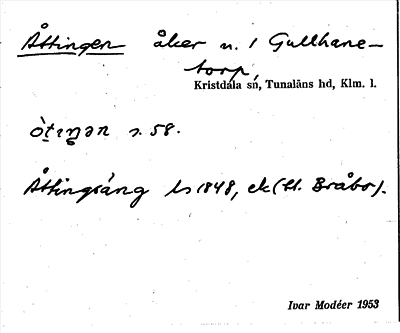 Åttingen åker n. 1 Gullhane-
torp,
Kristdala sn, Tunaläns hd, Klm. l.
òt̠ɪŋən s. 58.
Åttingsäng Ls 1848, ek (t. Bråbo).
Ivar Modéer 1953